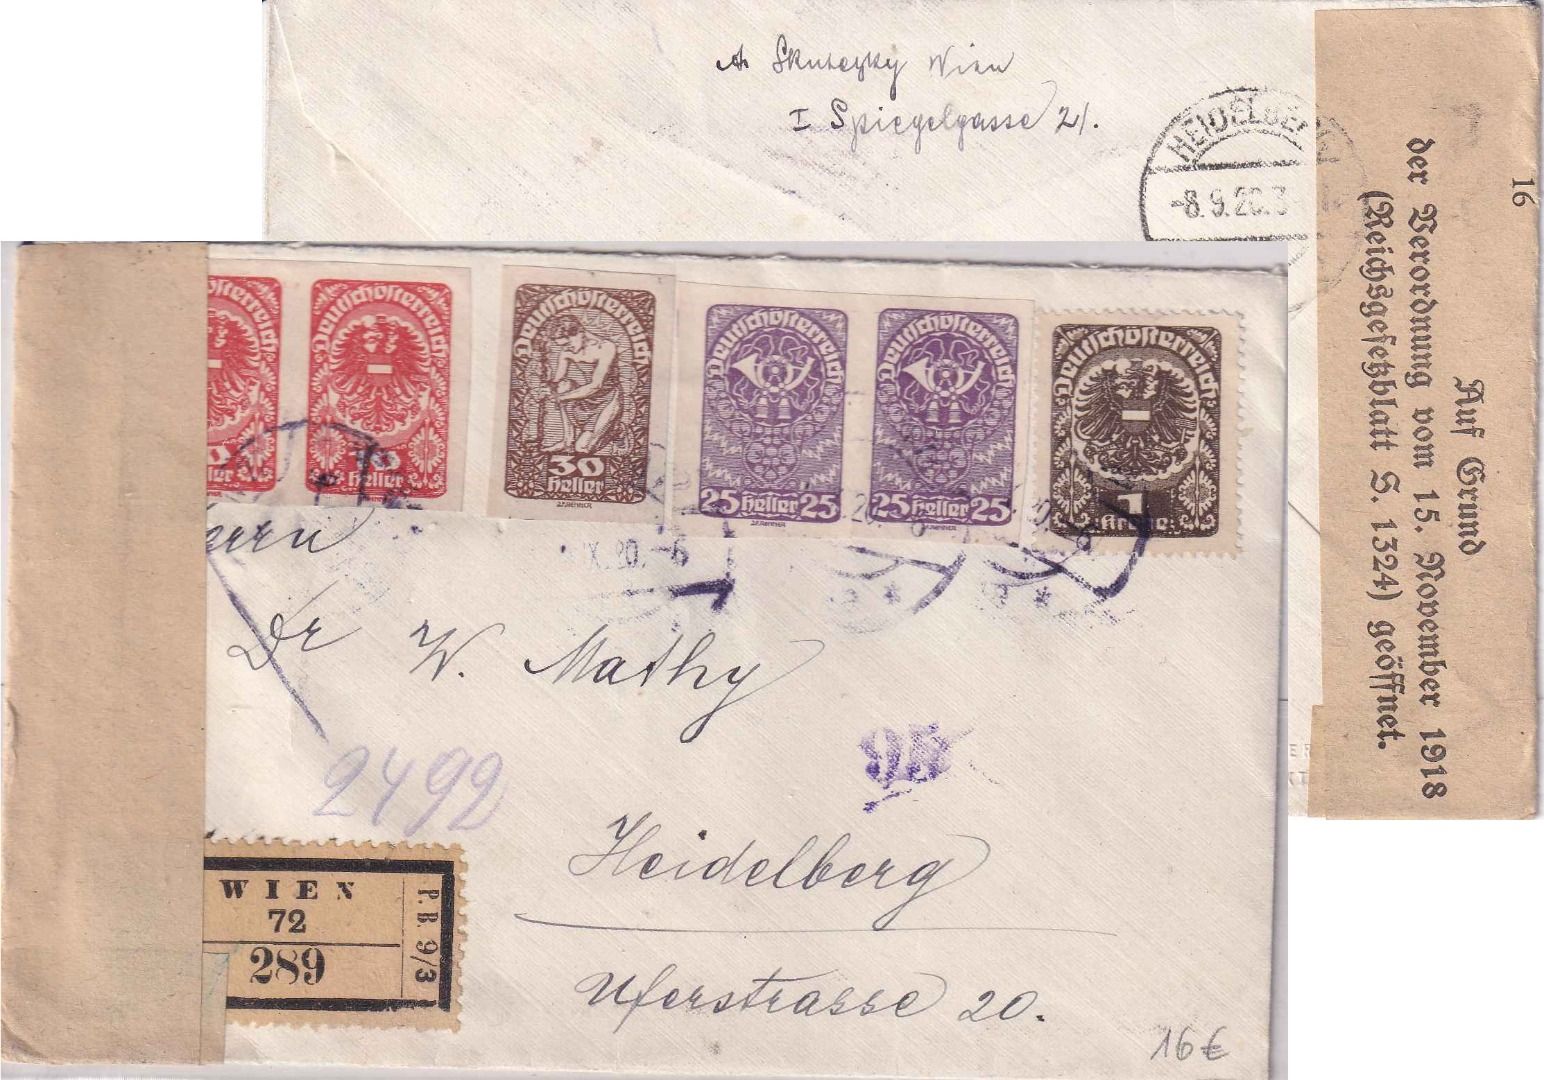 Skutezky Wien
I Spiegelgasse 21.
HEIDELBER
-8.9.20.3
16
Auf Grund
der Verordnung vom 15. November 1918
(Reichsgesetzblatt S. 1324) geöffnet.
Deutschösterreich
Deutschösterreich
heller
Deutschösterreich
30
heller
Deutschösterreich
25 heller 25
Deutschösterreich
25 heller 25
Deutschösterreich
1
Krone
IX.20.-6
Dr W. Mathy
2492
Heidelberg
Uferstrasse 20.
WIEN
72
289
P.B. 9/3
16 €